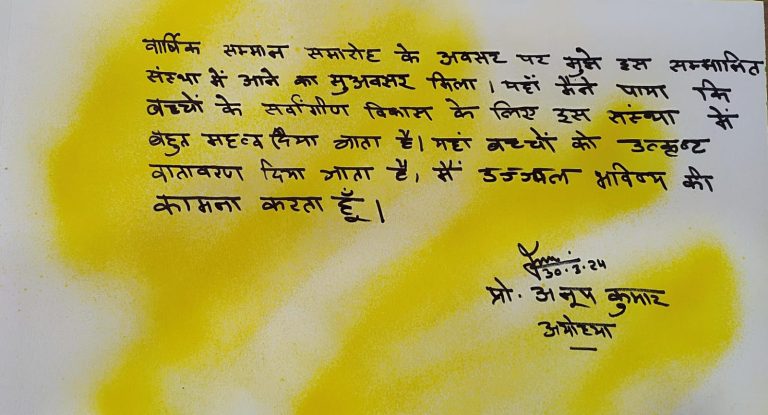 वार्षिक सम्मान समारोह के अवसर पर मुझे इस सम्मानित
संस्था में आने का सुअवसर मिला। यहां मैंने पाया कि
बच्चों के सर्वांगीण विकास के लिए इस संस्था में
बहुत महत्व दिया जाता है। यहां बच्चों को उत्कृष्ट
वातावरण दिया जाता है, मैं उज्ज्वल भविष्य की
कामना करता हूँ।
30.3.24
प्रो. अनूप कुमार
अयोध्या